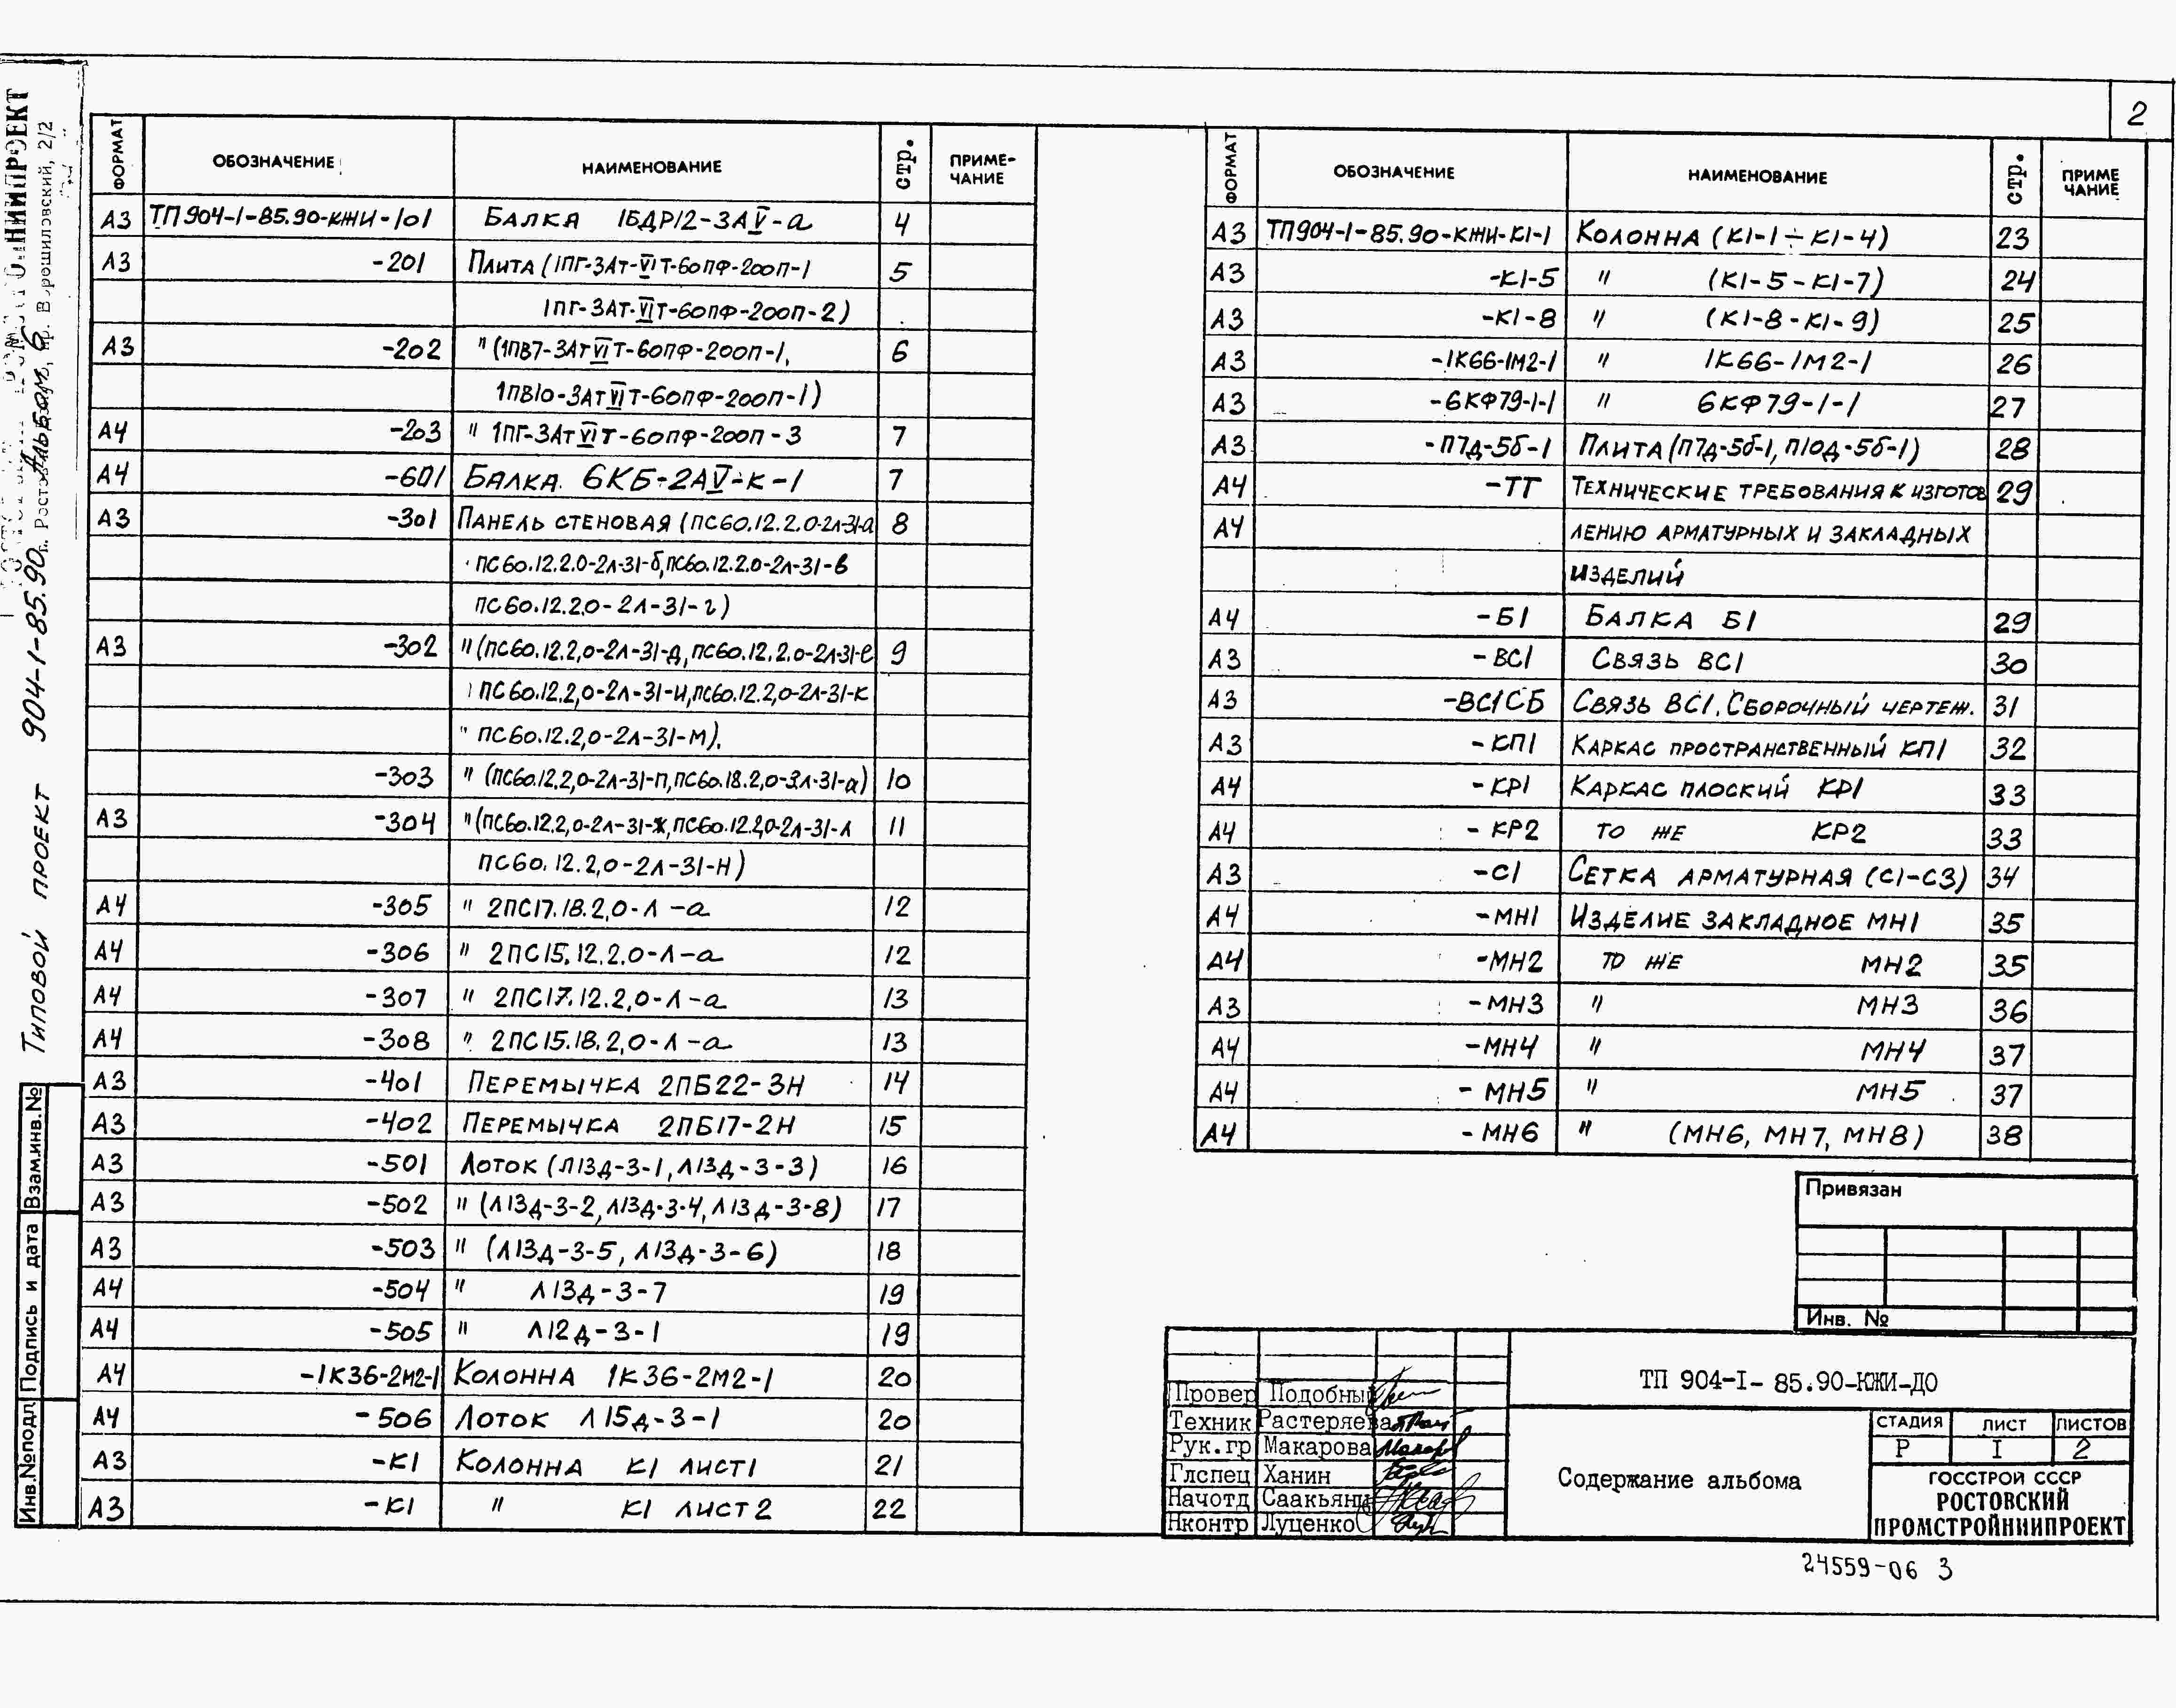 2
ФОРМАТ ОБОЗНАЧЕНИЕ НАИМЕНОВАНИЕ стр. ПРИМЕ-
ЧАНИЕ
А3 ТП904-1-85.90-КЖИ-101 БАЛКА 1БДР12-3АV-а 4
А3 -201 ПЛИТА (1ПГ-3Ат-VIТ-60ПФ-200П-1 5
1ПГ-3АТ-VIТ-60ПФ-200П-2)
А3 -202 " (1ПВ7-3АтVIТ-60ПФ-200П-1, 6
1ПВ10-3АтVIТ-60ПФ-200П-1)
А4 -203 " 1ПГ-3АтVIТ-60ПФ-200П-3 7
А4 -601 БАЛКА 6КБ-2АV-К-1 7
А3 -301 ПАНЕЛЬ СТЕНОВАЯ (ПС60.12.2.0-2Л-31-а 8
ПС60.12.2.0-2Л-31-б,ПС60.12.2.0-2Л-31-в
ПС60.12.2.0-2Л-31-г)
А3 -302 " (ПС60.12.2,0-2Л-31-д,ПС60.12.2.0-2Л-31-е 9
ПС60.12.2,0-2Л-31-и,ПС60.12.2,0-2Л-31-к
" ПС60.12.2,0-2Л-31-м).
-303 " (ПС60.12.2,0-2Л-31-п,ПС60.18.2,0-3Л-31-а) 10
А3 -304 " (ПС60.12.2,0-2Л-31-ж,ПС60.12.2,0-2Л-31-л 11
ПС60.12.2,0-2Л-31-н)
А4 -305 " 2ПС17.18.2,0-Л-а 12
А4 -306 " 2ПС15.12.2.0-Л-а 12
А4 -307 " 2ПС17.12.2,0-Л-а 13
А4 -308 " 2ПС15.18.2,0-Л-а 13
А3 -401 ПЕРЕМЫЧКА 2ПБ22-3Н 14
А3 -402 ПЕРЕМЫЧКА 2ПБ17-2Н 15
А3 -501 ЛОТОК (Л13д-3-1, Л13д-3-3) 16
А3 -502 " (Л13д-3-2, Л13д-3-4, Л13д-3-8) 17
А3 -503 " (Л13д-3-5, Л13д-3-6) 18
А4 -504 " Л13д-3-7 19
А4 -505 " Л12д-3-1 19
А4 -1К36-2М2-1 КОЛОННА 1К36-2М2-1 20
А4 -506 ЛОТОК Л15д-3-1 20
А3 -К1 КОЛОННА К1 ЛИСТ1 21
А3 -К1 " К1 ЛИСТ2 22
ФОРМАТ ОБОЗНАЧЕНИЕ НАИМЕНОВАНИЕ стр. ПРИМЕ
ЧАНИЕ
А3 ТП904-1-85.90-КЖИ-К1-1 КОЛОННА (К1-1÷К1-4) 23
А3 -К1-5 " (К1-5-К1-7) 24
А3 -К1-8 " (К1-8-К1-9) 25
А3 -1К66-1М2-1 " 1К66-1М2-1 26
А3 -6КФ79-1-1 " 6КФ79-1-1 27
А3 -П7д-5б-1 ПЛИТА (П7д-5б-1, П10д-5б-1) 28
А4 -ТТ ТЕХНИЧЕСКИЕ ТРЕБОВАНИЯ К ИЗГОТОВ 29
А4 ЛЕНИЮ АРМАТУРНЫХ И ЗАКЛАДНЫХ
ИЗДЕЛИЙ
А4 -Б1 БАЛКА Б1 29
А3 -ВС1 СВЯЗЬ ВС1 30
А3 -ВС1СБ СВЯЗЬ ВС1. СБОРОЧНЫЙ ЧЕРТЕЖ. 31
А3 -КП1 КАРКАС ПРОСТРАНСТВЕННЫЙ КП1 32
А4 -КР1 КАРКАС ПЛОСКИЙ КР1 33
А4 -КР2 ТО ЖЕ КР2 33
А3 -С1 СЕТКА АРМАТУРНАЯ (С1-С3) 34
А4 -МН1 ИЗДЕЛИЕ ЗАКЛАДНОЕ МН1 35
А4 -МН2 ТО ЖЕ МН2 35
А3 -МН3 " МН3 36
А4 -МН4 " МН4 37
А4 -МН5 " МН5 37
А4 -МН6 " (МН6, МН7, МН8) 38
Привязан
Инв. №
Провер Подобный
Техник Растеряева
Рук.гр Макарова
Глспец Ханин
Начотд Саакьянц
Нконтр Луценко
ТП 904-I-85.90-КЖИ-ДО
Содержание альбома
СТАДИЯ ЛИСТ ЛИСТОВ
Р I 2
ГОССТРОЙ СССР
РОСТОВСКИЙ
ПРОМСТРОЙНИИПРОЕКТ
24559-06 3
ТИПОВОЙ ПРОЕКТ 904-1-85.90 АЛЬБОМ 6
НИИПРОЕКТ
пр. Ворошиловский, 2/2
Инв.№подл Подпись и дата Взаминв.№